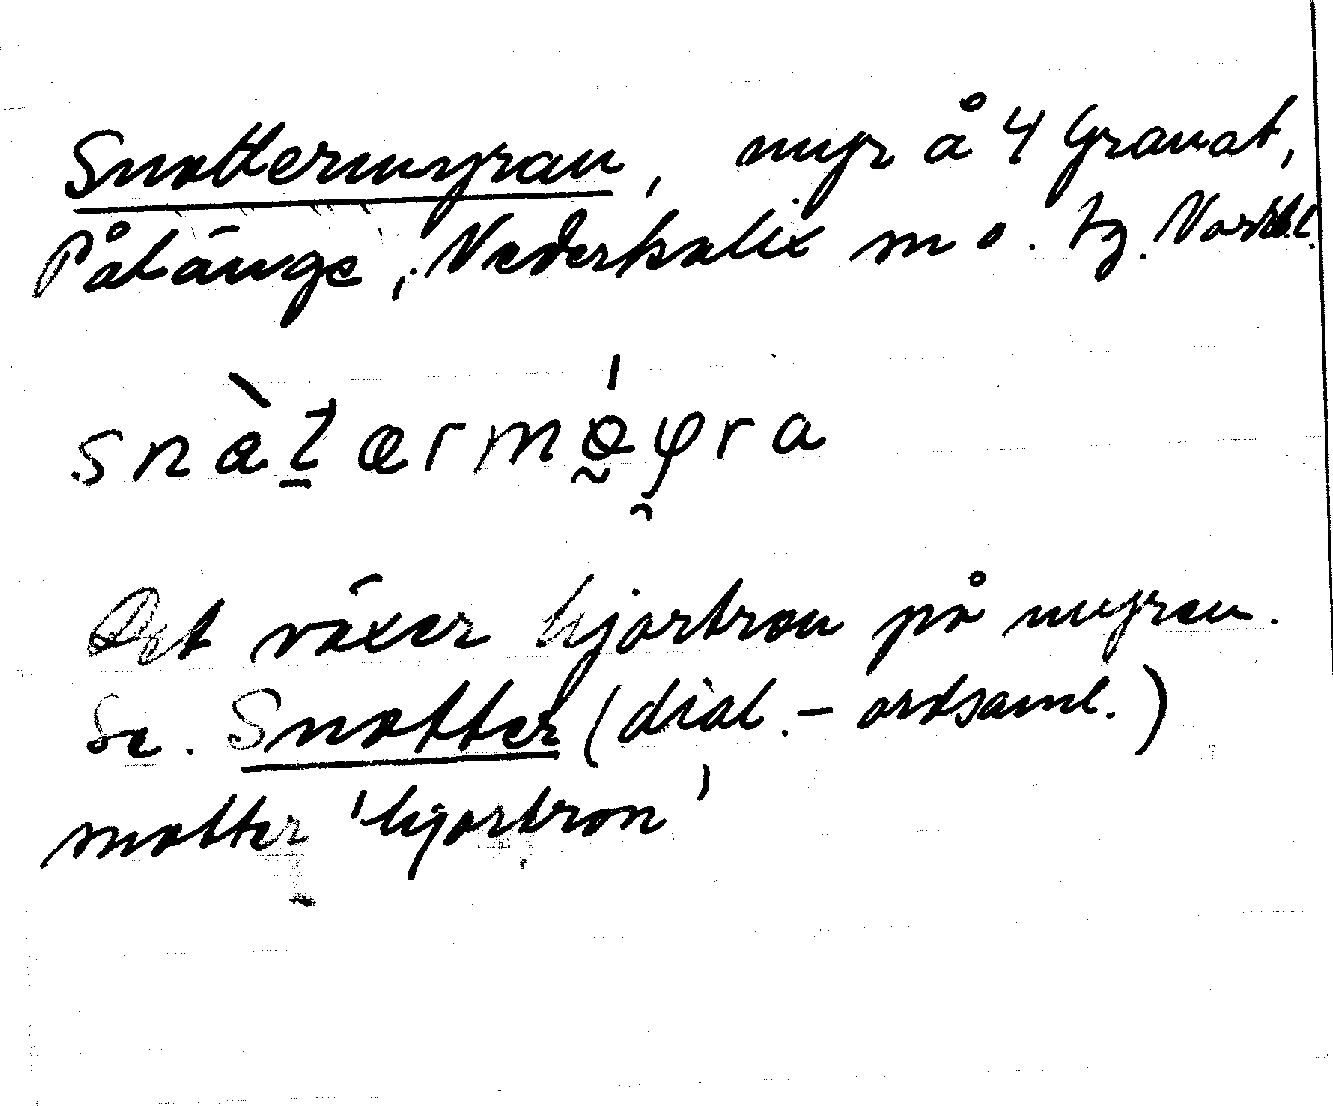 Snottermyran, myr å 4 Granat,
Pålänge, Nederkalix sn o. tg. Norrb.l.
Det växer hjortron på myren.
Se. Snotter (dial. - ordsaml.)
snotter 'hjortron'